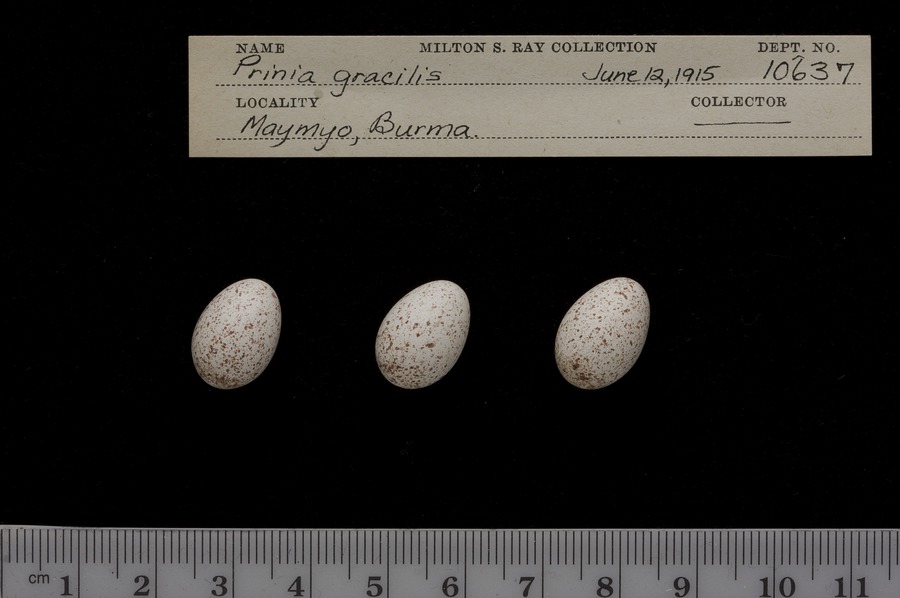 NAME MILTON S. RAY COLLECTION DEPT. NO.
Prinia gracilis June 12, 1915 10637
LOCALITY COLLECTOR
Maymyo, Burma.
cm 1 2 3 4 5 6 7 8 9 10 11